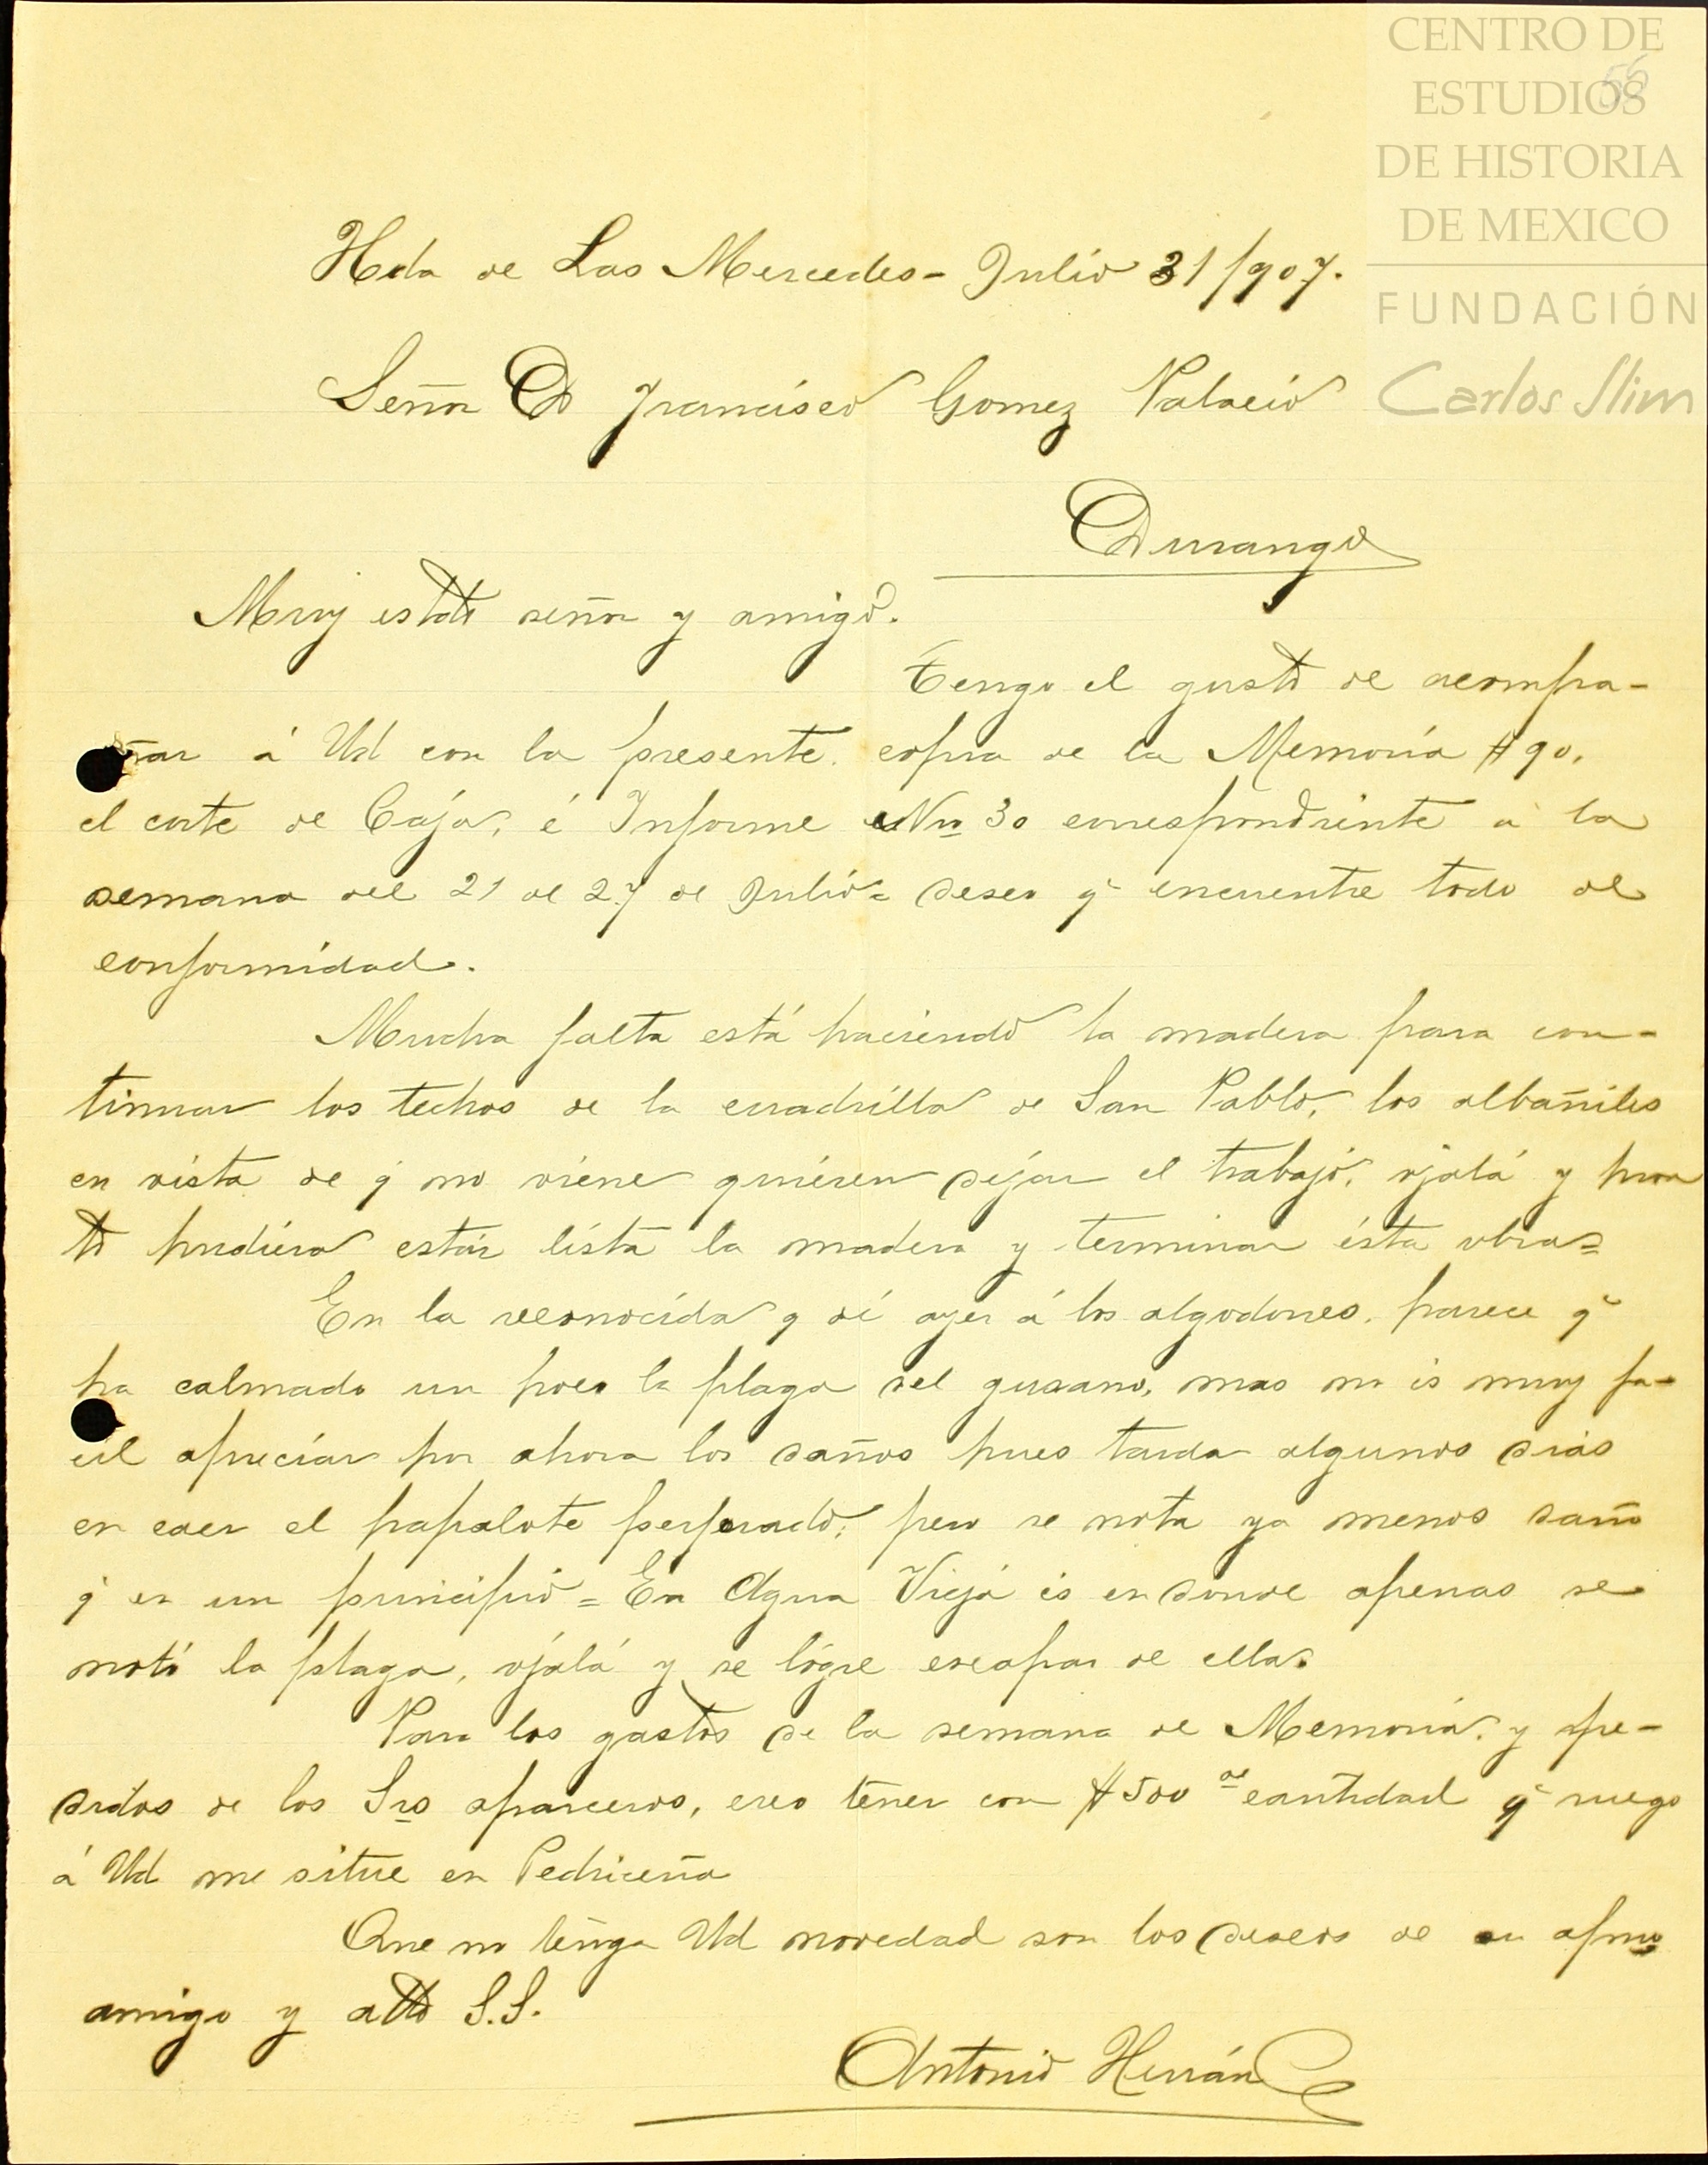 CENTRO DE
ESTUDIOS
DE HISTORIA
DE MEXICO
FUNDACIÓN
Carlos Slim
56
Hda de Las Mercedes - Julio 31/907.
Señor D Francisco Gomez Palacio
Durango
Muy estdo señor y amigo.
Tengo el gusto de acompa-
ñar á Ud con la presente. copia de la Memoria # 90.
el corte de Caja, é Informe No 30 correspondiente á la
semana del 21 al 27 de Julio = Deseo q̃ encuentre todo de
conformidad.
Mucha falta está haciendo la madera para con-
tinuar los techos de la cuadrilla de San Pablo, los albañiles
en vista de q̃ no viene quieren dejar el trabajo, ojalá y pron
to pudiera estár lista la madera y terminar ésta obra =
En la reconocida q dí ayer á los algodones, parece q̃
ha calmado un poco la plaga del gusano, mas no es muy fa-
cil apreciar por ahora los daños pues tarda algunos dias
en caer el papalote perforado; pero se nota ya menos daño
q̃ en un principio = En Agua Vieja es en donde apenas se
notó la plaga, ojalá y se lógre escapar de ella.
Para los gastos de la semana de Memoria. y pe-
didos de los Srs aparceros, creo tener con $500 cantidad q̃ ruego
á Ud me sitúe en Pedriceña
Que no tenga Ud novedad son los deseos de su afmo
amigo y atto S.S.
Antonio Herrán